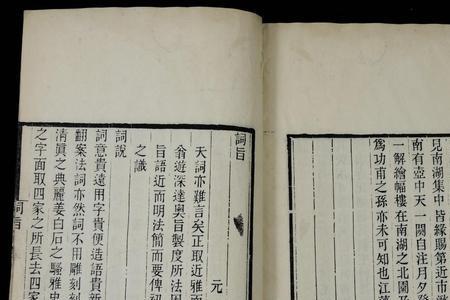 見南湖集中皆緣賜第近市湫
南有壺中天一闋自注月夕登
一解繪幅樓在南湖之北園
爲功甫之孫亦未可知也江
詞旨
元
天詞亦難言矣正取近雅而
翁遊深達奧旨製度所法因
旨語近而明法簡而要俾
之識
詞說
詞意貴遠用字貴便造語貴新
翻案法詞亦然詞不用雕刻刻
清眞之典麗姜白石之騷雅史
之字面取四家之所長去四家
詞旨